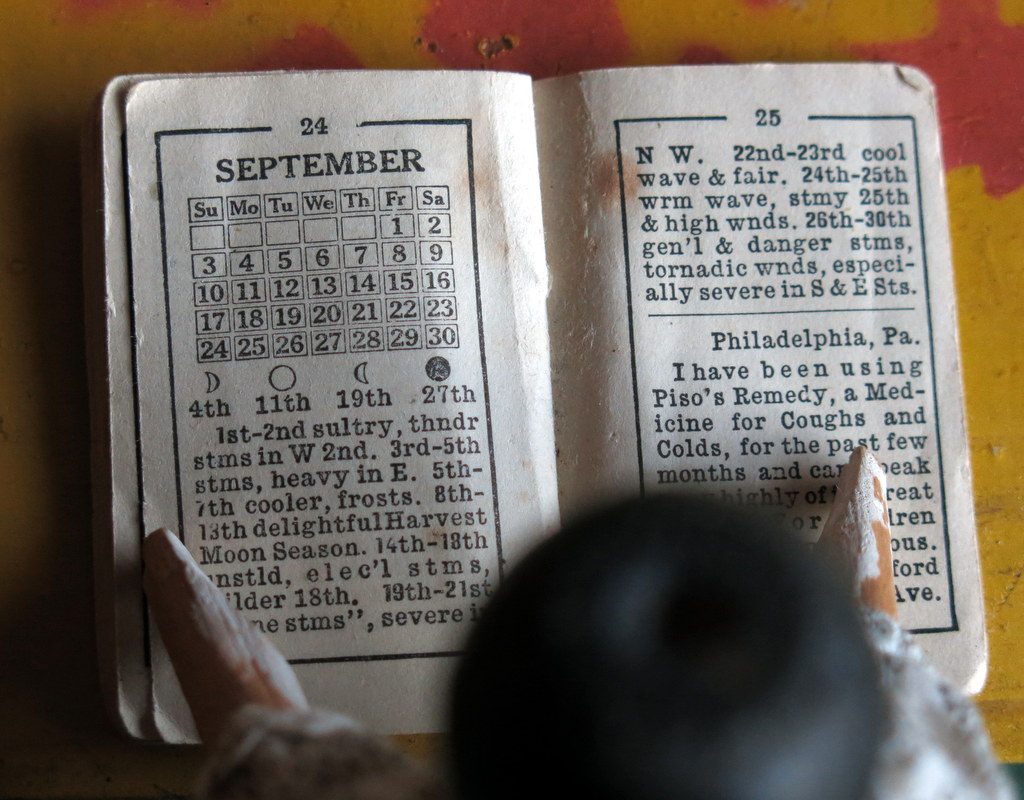 24
SEPTEMBER
Su Mo Tu We Th Fr Sa
1 2
3 4 5 6 7 8 9
10 11 12 13 14 15 16
17 18 19 20 21 22 23
24 25 26 27 28 29 30
4th 11th 19th 27th
1st-2nd sultry, thndr
stms in W 2nd. 3rd-5th
stms, heavy in E. 5th-
7th cooler, frosts. 8th-
13th delightful Harvest
Moon Season. 14th-18th
elec'l stms,
18th. 19th-21st
stms", severe
25
N W. 22nd-23rd cool
wave & fair. 24th-25th
wrm wave, stmy 25th
& high wnds. 26th-30th
gen'l & danger stms,
tornadic wnds, especi-
ally severe in S & E Sts.
Philadelphia, Pa.
I have been using
Piso's Remedy, a Med-
icine for Coughs and
Colds, for the past few
months and can
highly of
Ave.